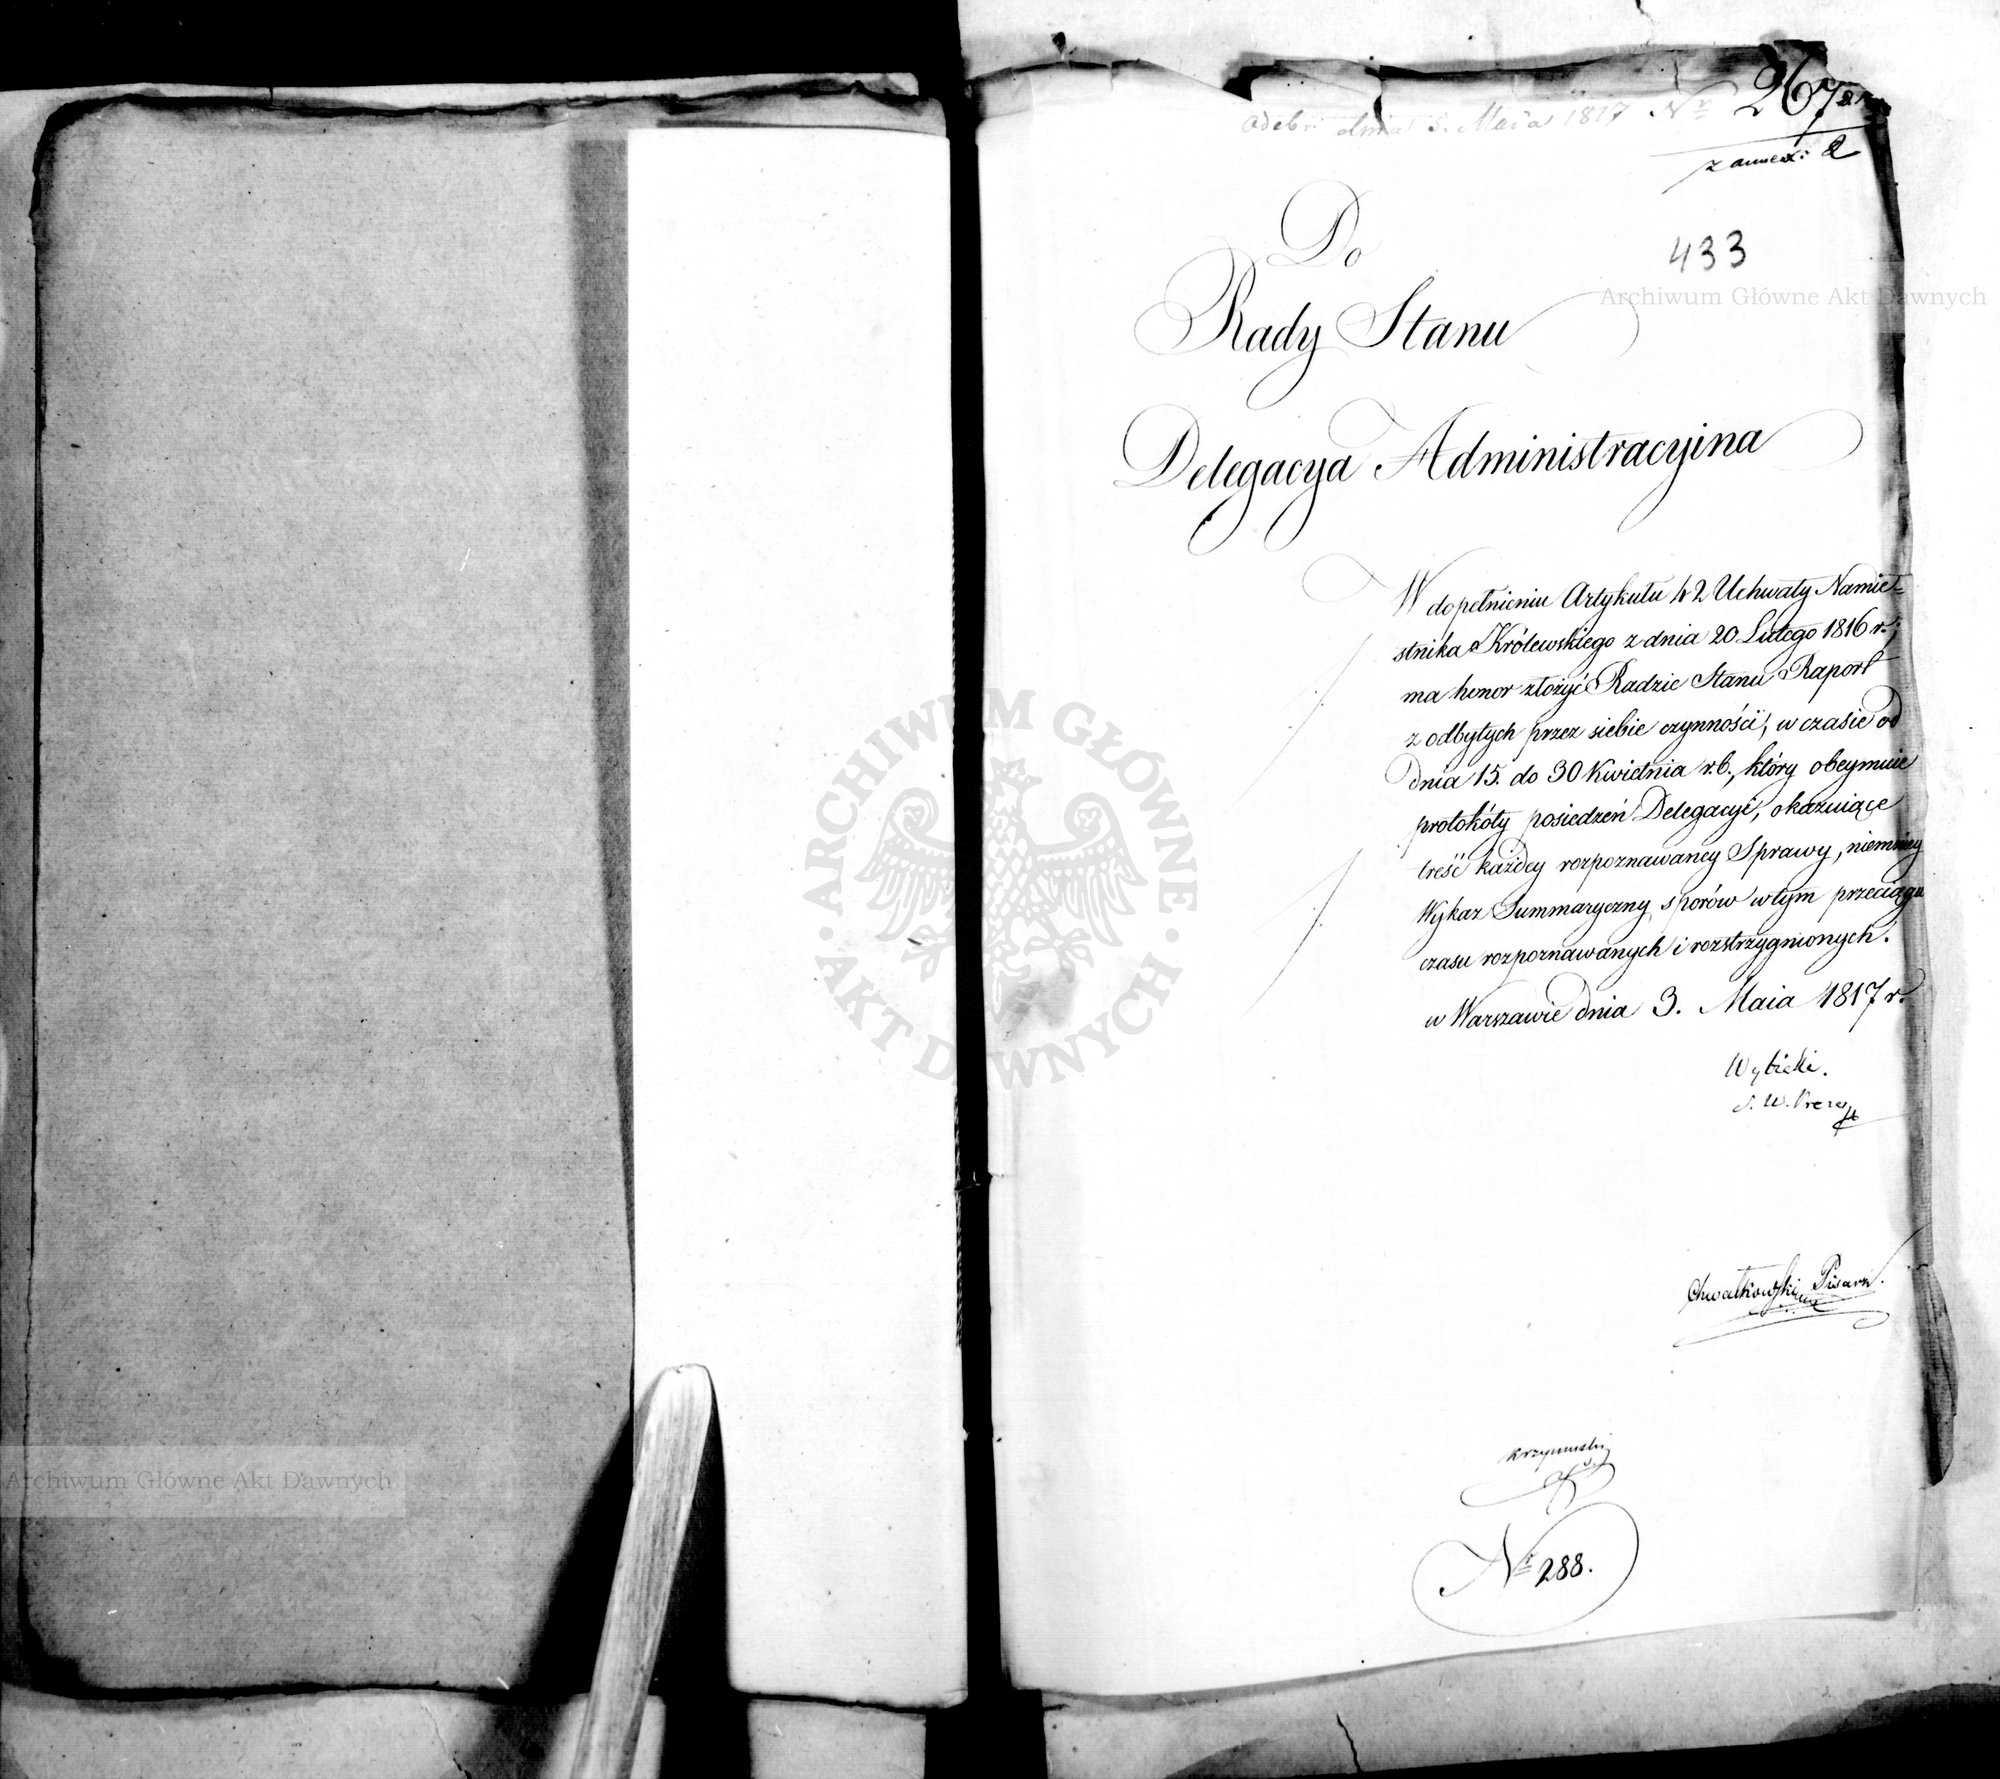 odebr: dnia 5. Maia 1817 Nr 267
z annex: 2
433
Archiwum Główne Akt Dawnych
Do
Rady Stanu
Delegacya Administracyina
W dopełnieniu Artykułu 42 Uchwały Namie=
stnika Królewskiego z dnia 20 Lutego 1816 r.;
ma honor złożyć Radzie Stanu Raport
z odbytych przez siebie czynności, w czasie od
dnia 15. do 30 Kwietnia r.b., który obeymuie
protokóły posiedzeń Delegacyi, okazuiące
treść każdey rozpoznawaney Sprawy, niemniey
Wykaz Summaryczny sporów w tym przeciągu
czasu rozpoznawanych i rozstrzygnionych.
w Warszawie dnia 3. Maia 1817 r.
Wybicki.
S. W. Prezes
Chwałkowski Pisarz.
Krzymuski
Nr 288.
ARCHIWUM GŁÓWNE
AKT DAWNYCH
Archiwum Główne Akt Dawnych